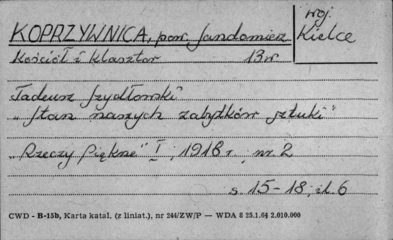 KOPRZYWNICA, pow. Sandomierz
woj. Kielce
Kościół i klasztor 13 w
Tadeusz Szydłowski
"Stan naszych zabytków sztuki"
"Rzeczy Piękne" I, 1918 r, nr. 2
s. 15-18, il. 6
CWD - B-15b, Karta katal. (z liniat.), nr 244/ZW/P — WDA 8 25.1.64 2.010.000